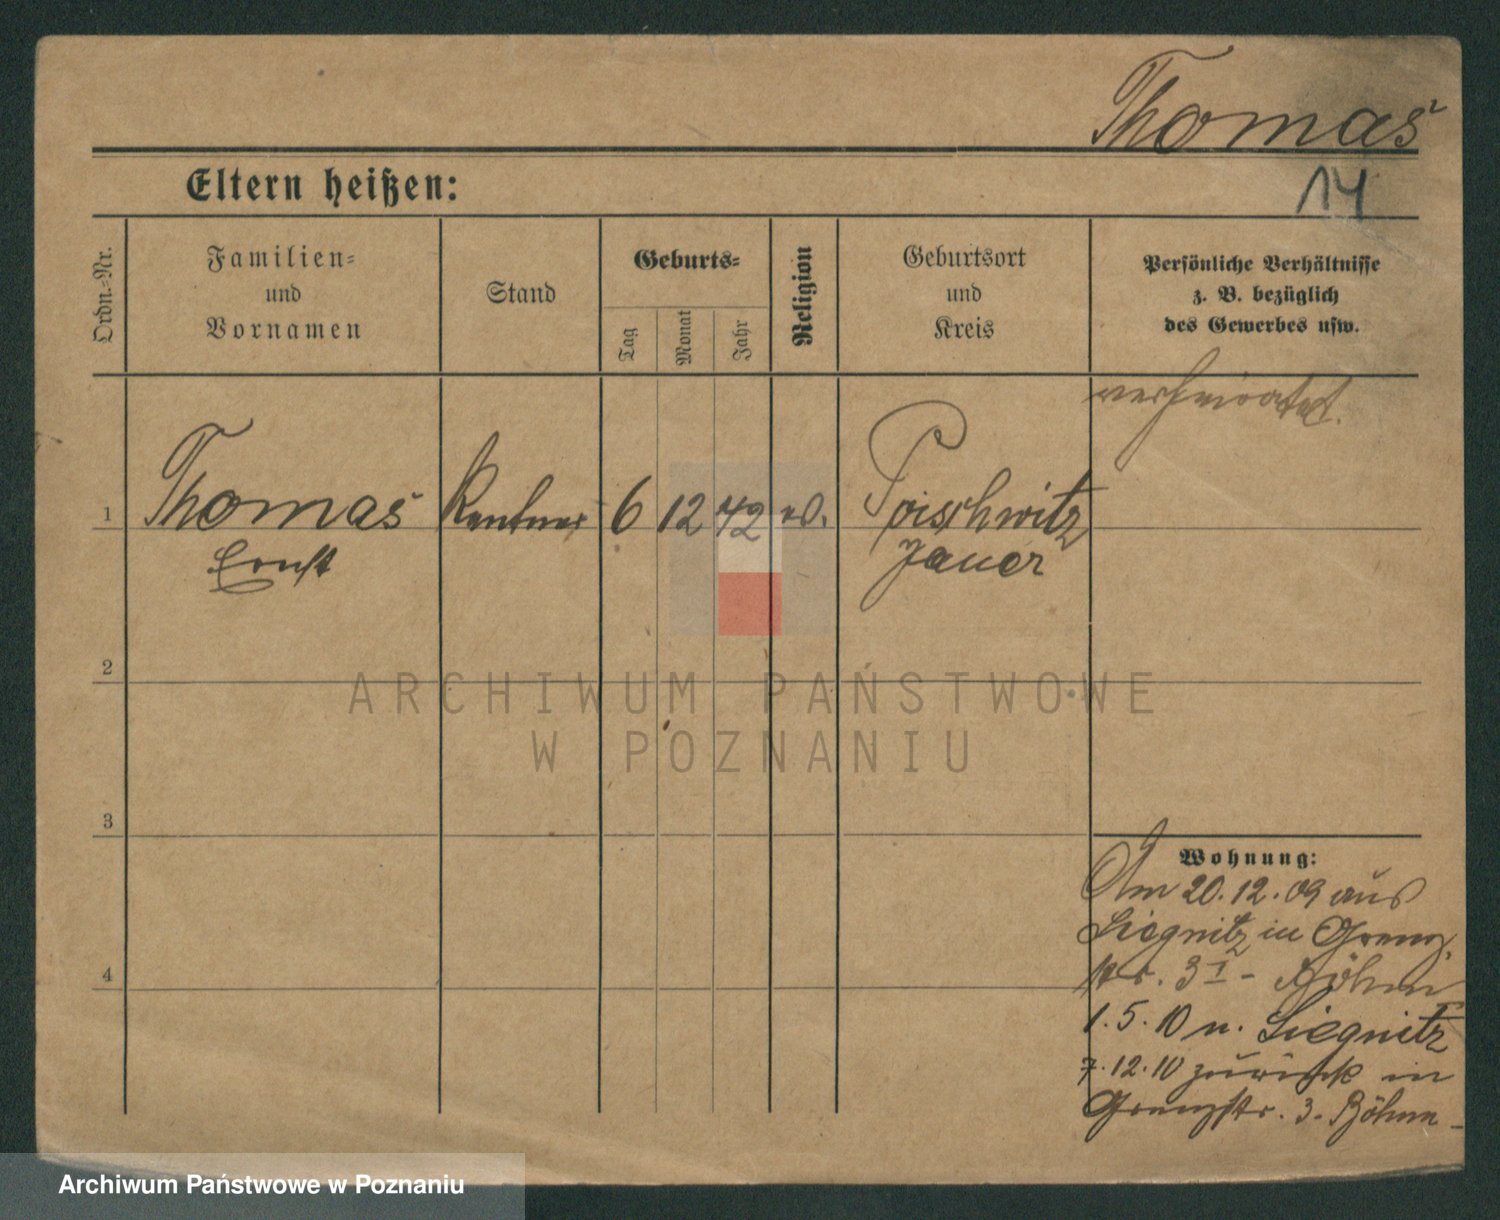 Thomas
Eltern heißen:
14
Ordn.-Nr.
Familien-
und
Vornamen
Stand
Geburts-
Tag
Monat
Jahr
Religion
Geburtsort
und
Kreis
Persönliche Verhältnisse
z. B. bezüglich
des Gewerbes usw.
verheiratet.
1
Thomas
Rentner
6
12
42
ev.
Poischwitz
Ernst
Jauer
2
ARCHIWUM PAŃSTWOWE
W POZNANIU
3
Wohnung:
Am 20.12.09 aus
Liegnitz in Grenz-
str. 3 I - Böhm
4
1.5.10 n. Liegnitz
7.12.10 zurück in
Grenzstr. 3. Böhm -
Archiwum Państwowe w Poznaniu